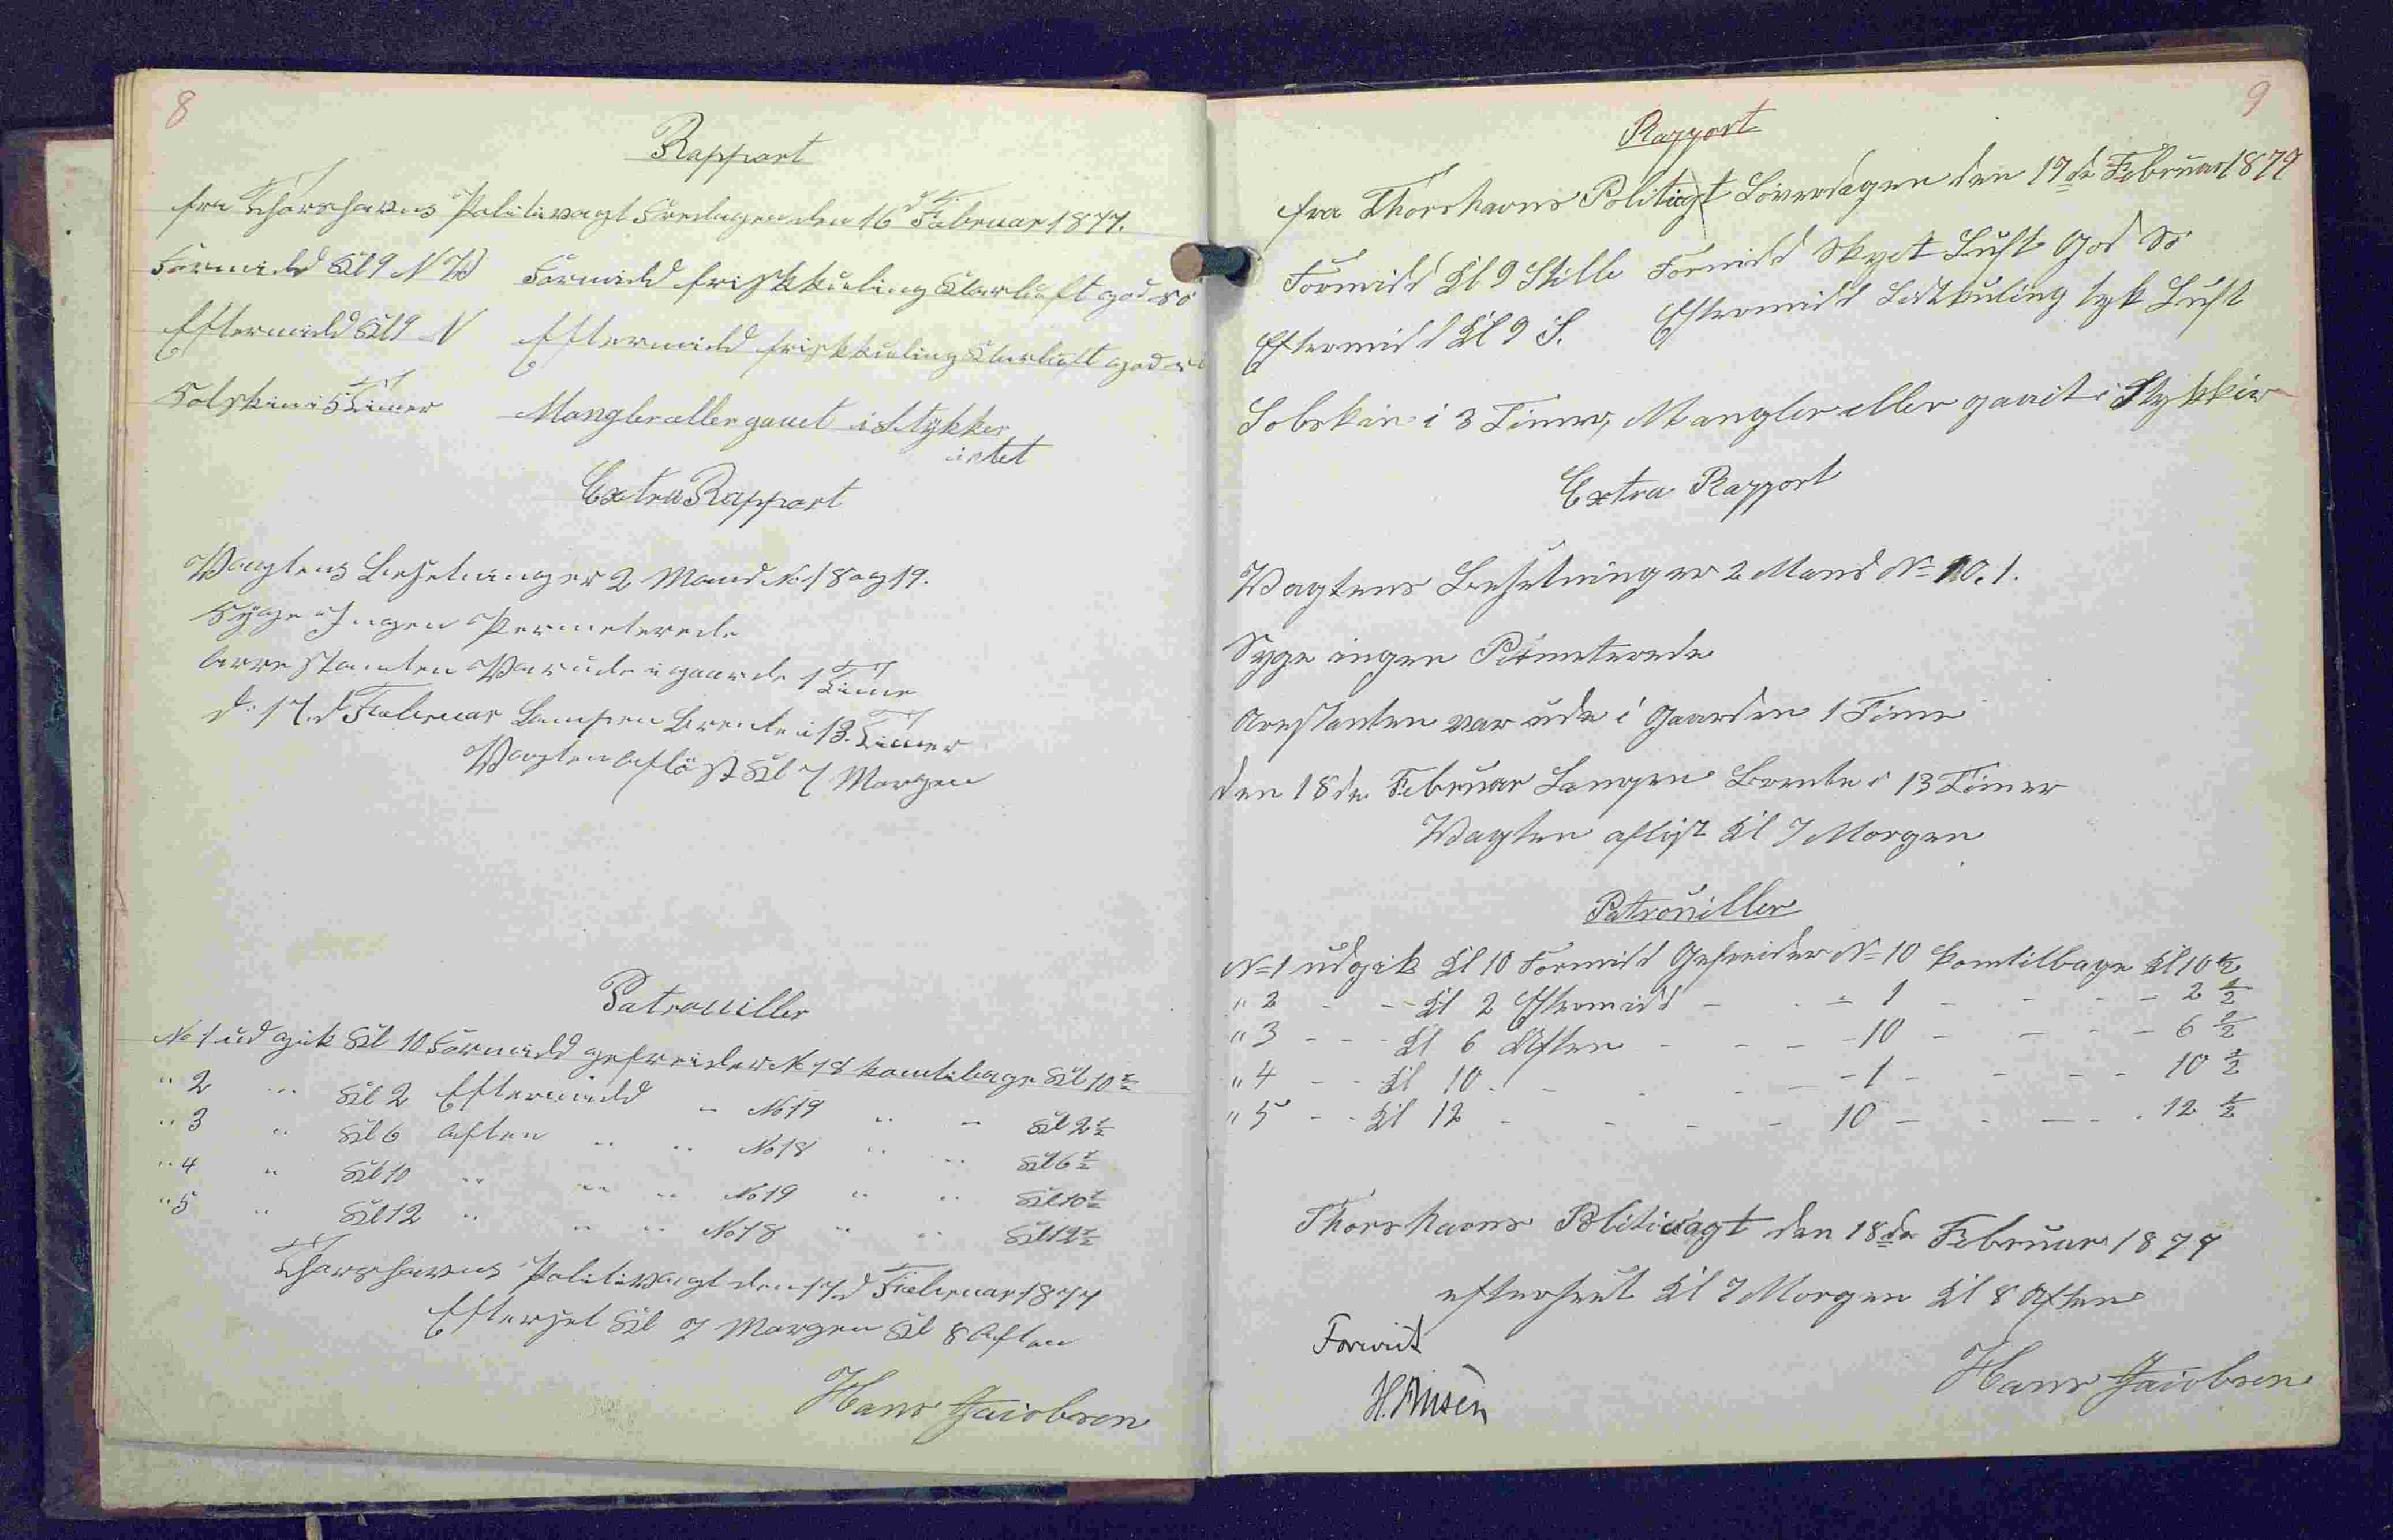 8
Rappart
fra Thorshavns Politivagt Fredagen den 16 d Februar 1877.
Formidd Kl 9 N V Formidd frisk kuling Klarluft god sö
Eftermidd Kl 9 N Eftermidd frisk kuling Klarluft god sö
Solskin i 5 Timer Mangler eller gaaet i Stykker
intet
Extra Rappart
Vagtens Besetninger 2 Mand No 18 og 19.
Syge Ingen Permeterede
Arrestanten Var ude i gaarde 1 Time
d: 17. d Februar Lampen Brente i 13. Timer
Vagten Aflöst Kl 7 Morgen
Patrouiller
No 1 ud gik Kl 10 Formidd gefreider No 18 komtilbage Kl 10 ½
" 2 " Kl 2 Eftermidd " No 19 " " Kl 2 ½
" 3 " Kl 6 Aften " " No 18 " " Kl 6 ½
" 4 " Kl 10 " " " No 19 " " Kl 10 ½
" 5 " Kl 12 " " " No 18 " " Kl 12 ½
Thorshavns Politivagt den 17 d Februar 1877
Efterset Kl 7 Morgen Kl 8 Aften
Hans Jacobsen
9
Rapport
fra Thorshavns Politiagt Löverdagen den 17 de Februar 1877
Formidd Kl 9 Stille Formidd Skyet Luft God Sö
Eftermidd Kl 9 S. Eftermidd Lidt kuling tyk Luft
Solskin i 3 Timer, Mangler eller gaait i Stykkir
Extra Rapport
Vagtens Besetninger 2 Mand No 10. 1.
Syge ingen Pirmeterede
Arestanten var ude i Gaarden 1 Time
den 18 de Februar Lampen Brente i 13 Timer
Vagten aflöst Kl 7 Morgen
Patrouiller
No 1 udgik Kl 10 Formidd Gefreider No 10 komtilbage Kl 10 ½
" 2 - - Kl 2 Eftermidd - - - 1 - - - - 2 ½
" 3 - - - Kl 6 Aften - - - - 10 - - - - 6 ½
" 4 - - Kl 10 - - - - 1 - - - - 10 ½
" 5 - - Kl 12 - - - - 10 - - - - 12 ½
Thorshavns Politivagt den 18 de Februar 1877
efterseet Kl 7 Morgen Kl 8 Aften
Forvist
Hans Jacobsen